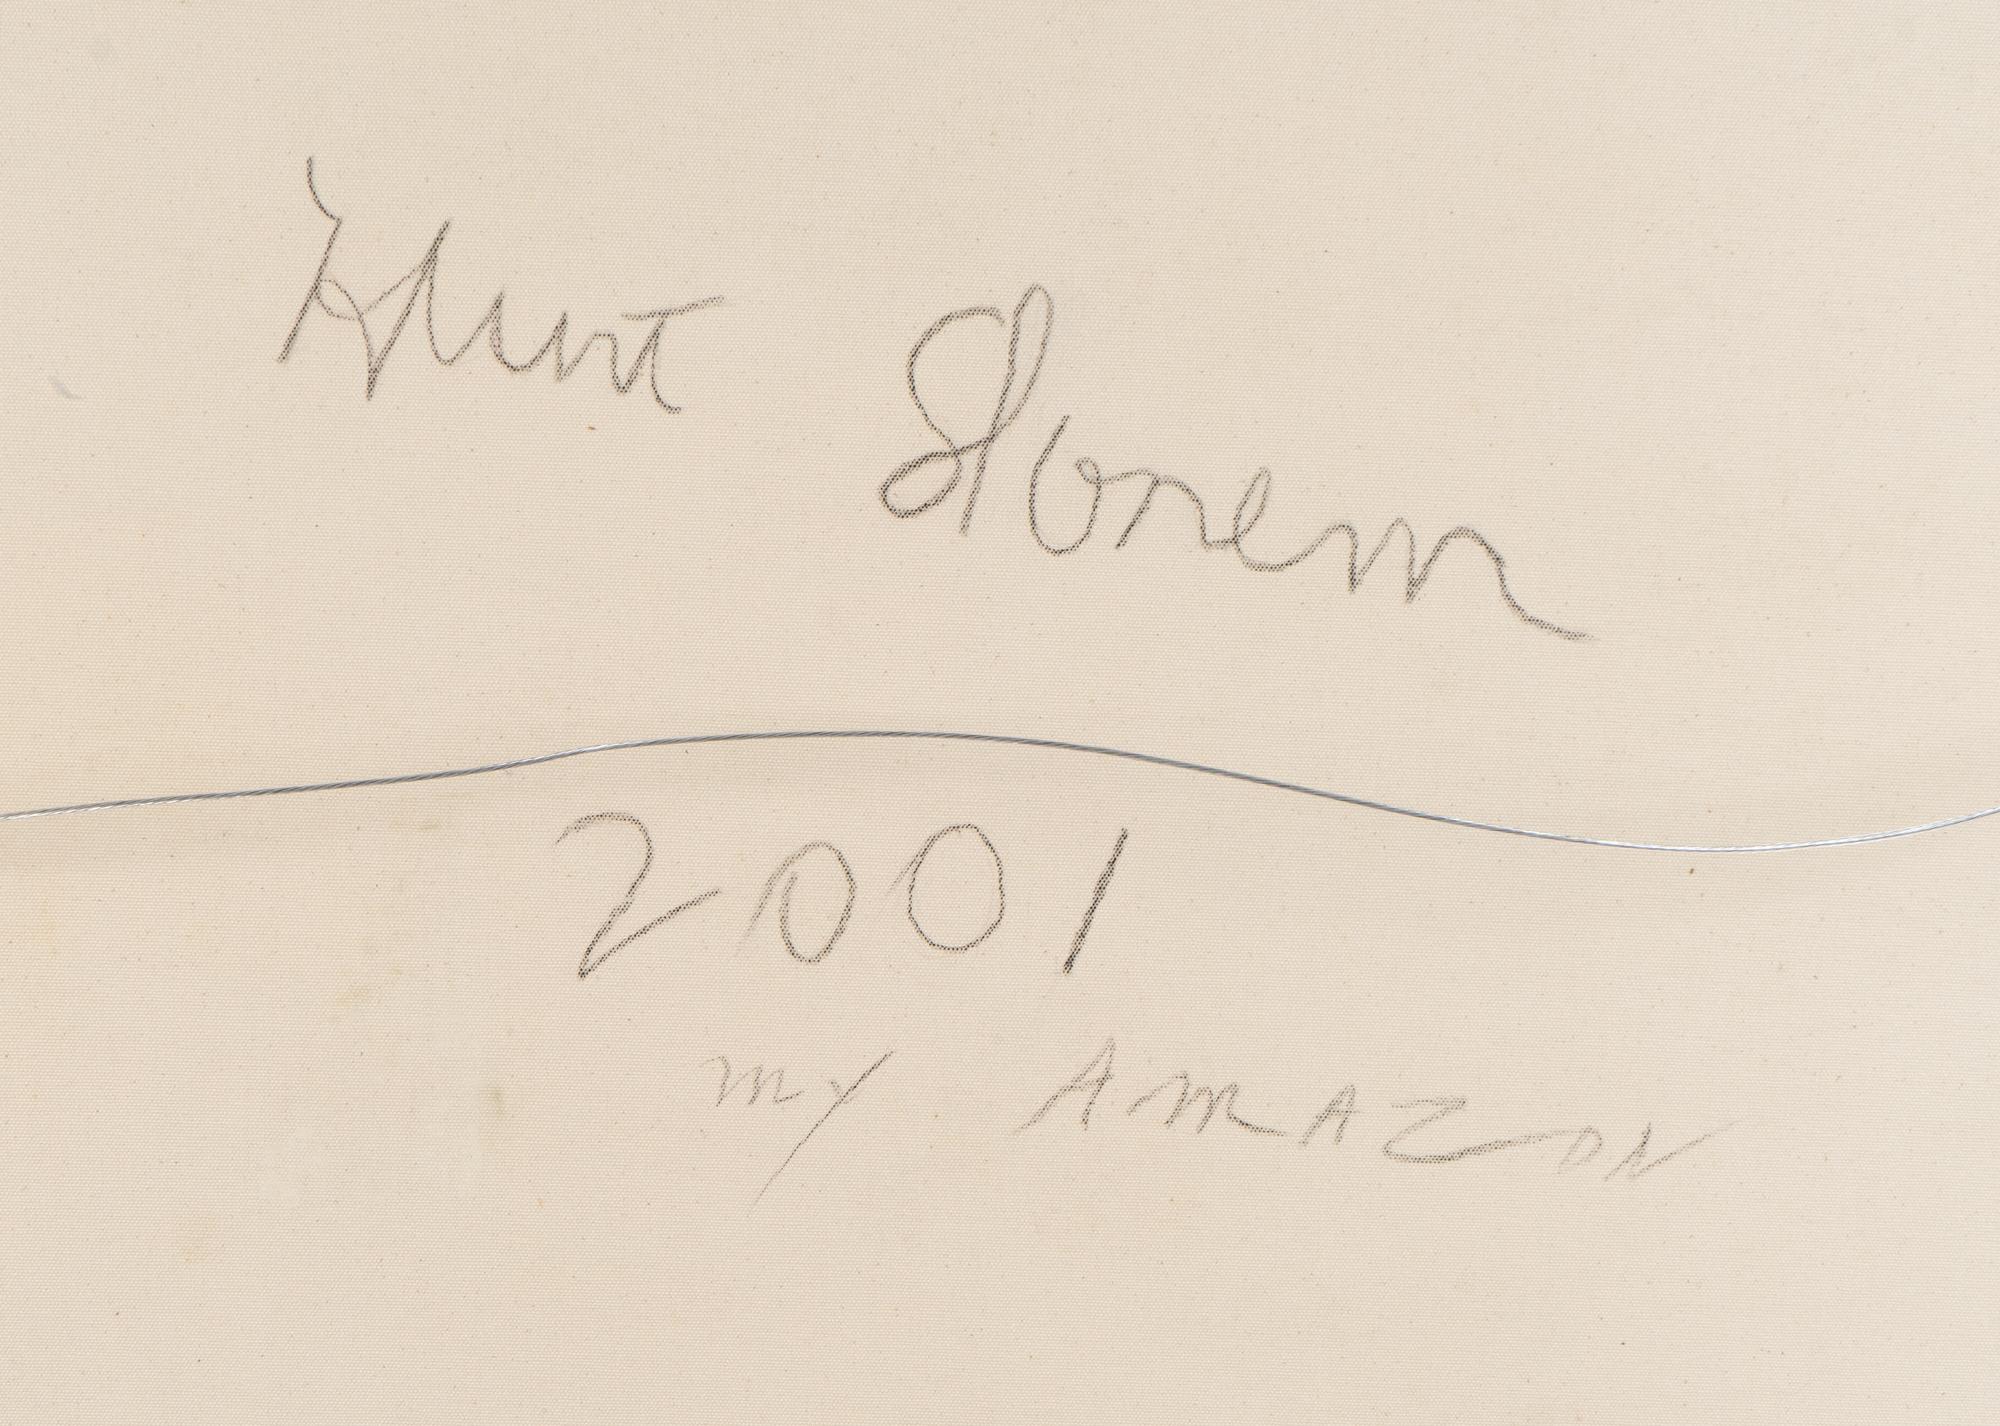 Hunt Slonem
2001
my AMAZON